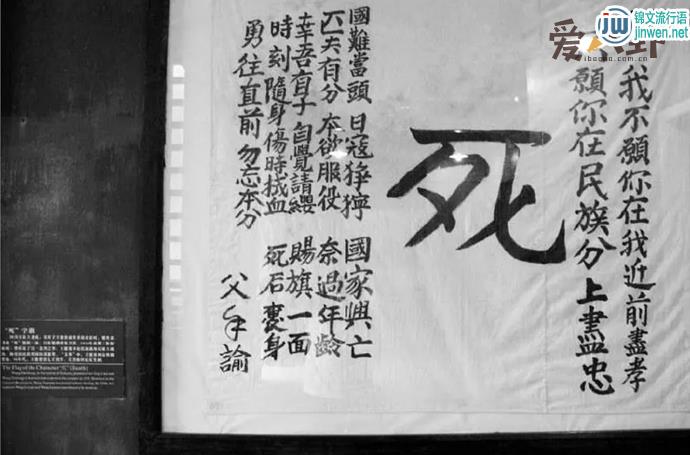 JW
锦文流行语
jinwen.net
我不願你在我近前盡孝
願你在民族分上盡忠
死
國難當頭 日寇猙獰 國家興亡
匹夫有分 本欲服役 奈過年齡
幸吾有子 自覺請纓 賜旗一面
時刻隨身 傷時拭血 死后裹身
勇往直前 勿忘本分
父手諭
“死”字旗
The Flag of the Character “死” (Death)